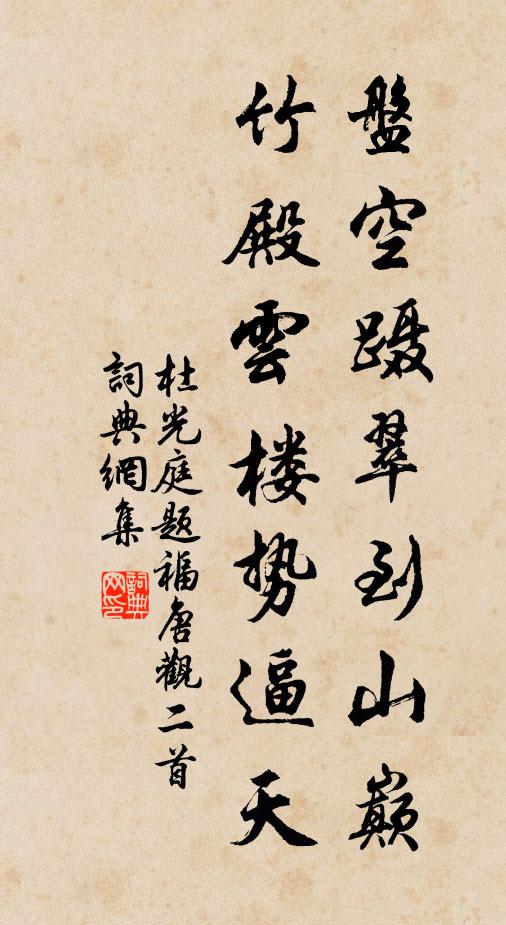 盤空蹑翠到山巅
竹殿雲楼势逼天
杜光庭题福唐觀二首
詞典網集
詞典网印